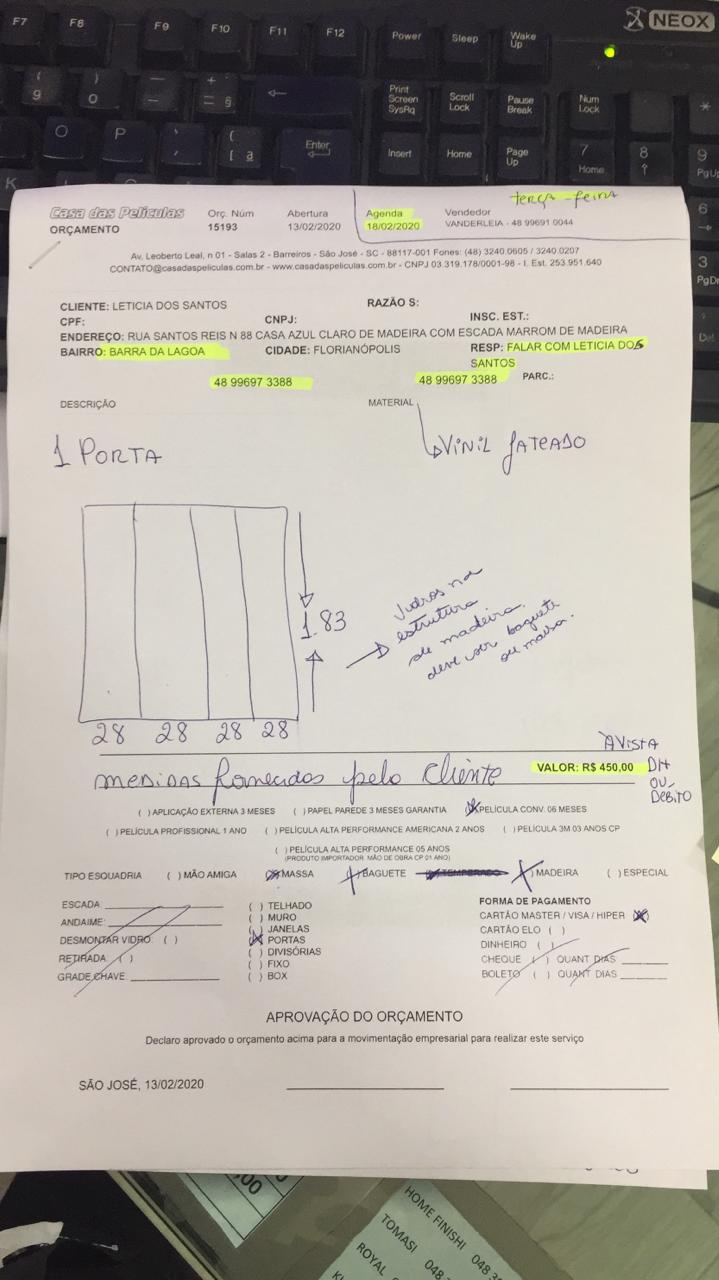 F7 F8 F9 F10 F11 F12 Power Sleep Wake Up
NEOX
Print Screen SysRq Scroll Lock Pause Break Num Lock
Insert Home Page Up 7 Home 8 9 PgUp
O P Enter
K
6
3 PgDn
terça-feira
Casa das Películas
ORÇAMENTO
Orç. Núm
15193
Abertura
13/02/2020
Agenda
18/02/2020
Vendedor
VANDERLEIA - 48 99691 0044
Av. Leoberto Leal, n 01 - Salas 2 - Barreiros - São José - SC - 88117-001 Fones: (48) 3240.0605 / 3240.0207
CONTATO@casadaspeliculas.com.br - www.casadaspeliculas.com.br - CNPJ 03.319.178/0001-98 - I. Est. 253.951.640
CLIENTE: LETICIA DOS SANTOS RAZÃO S:
CPF: CNPJ: INSC. EST.:
ENDEREÇO: RUA SANTOS REIS N 88 CASA AZUL CLARO DE MADEIRA COM ESCADA MARROM DE MADEIRA
BAIRRO: BARRA DA LAGOA CIDADE: FLORIANÓPOLIS RESP: FALAR COM LETICIA DOS
SANTOS
48 99697 3388 48 99697 3388 PARC.:
DESCRIÇÃO MATERIAL
1 PORTA
VINIL JATEADO
1.83
Vidros na
estrutura
de madeira.
deve ser baguete
ou massa.
28 28 28 28
À VISTA
medidas fornecidas pelo cliente
VALOR: R$ 450,00
DH
OU
DÉBITO
( ) APLICAÇÃO EXTERNA 3 MESES ( ) PAPEL PAREDE 3 MESES GARANTIA (X) PELÍCULA CONV. 06 MESES
( ) PELÍCULA PROFISSIONAL 1 ANO ( ) PELÍCULA ALTA PERFORMANCE AMERICANA 2 ANOS ( ) PELÍCULA 3M 03 ANOS CP
( ) PELÍCULA ALTA PERFORMANCE 05 ANOS
(PRODUTO IMPORTADOR. MÃO DE OBRA CP 01 ANO)
TIPO ESQUADRIA ( ) MÃO AMIGA (X) MASSA (X) BAGUETE TEMPERADO (X) MADEIRA ( ) ESPECIAL
ESCADA:
ANDAIME:
DESMONTAR VIDRO: ( )
RETIRADA: ( )
GRADE CHAVE:
( ) TELHADO
( ) MURO
( ) JANELAS
(X) PORTAS
( ) DIVISÓRIAS
( ) FIXO
( ) BOX
FORMA DE PAGAMENTO
CARTÃO MASTER / VISA / HIPER (X)
CARTÃO ELO ( )
DINHEIRO ( )
CHEQUE ( ) QUANT DIAS
BOLETO ( ) QUANT DIAS
APROVAÇÃO DO ORÇAMENTO
Declaro aprovado o orçamento acima para a movimentação empresarial para realizar este serviço
SÃO JOSÉ, 13/02/2020
,00
HOME FINISHI 048 3
TOMASI 048
ROYAL